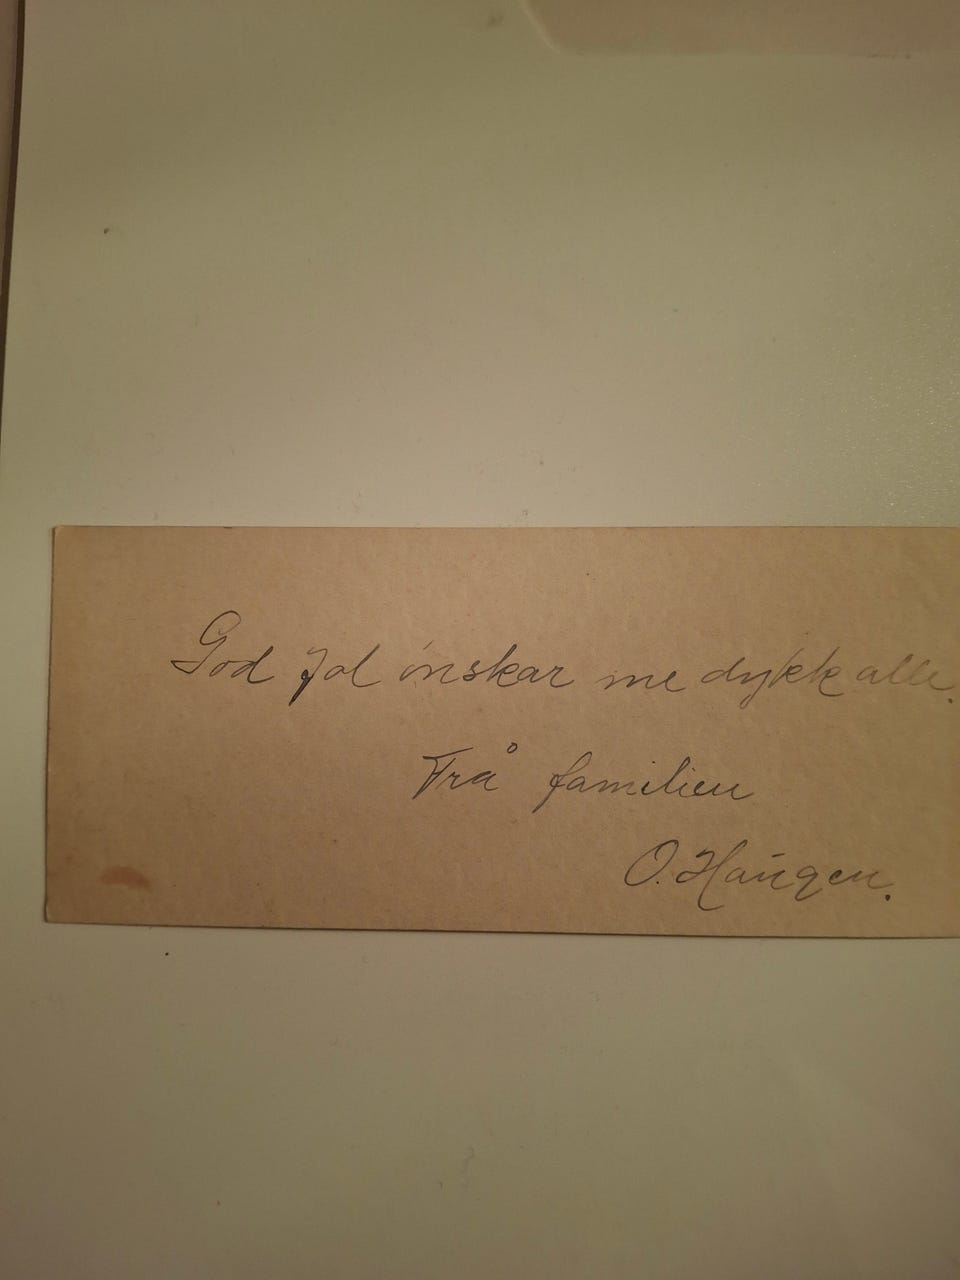 God Jol ónskar me dykk alle.
Frå familien
O. Haugen.